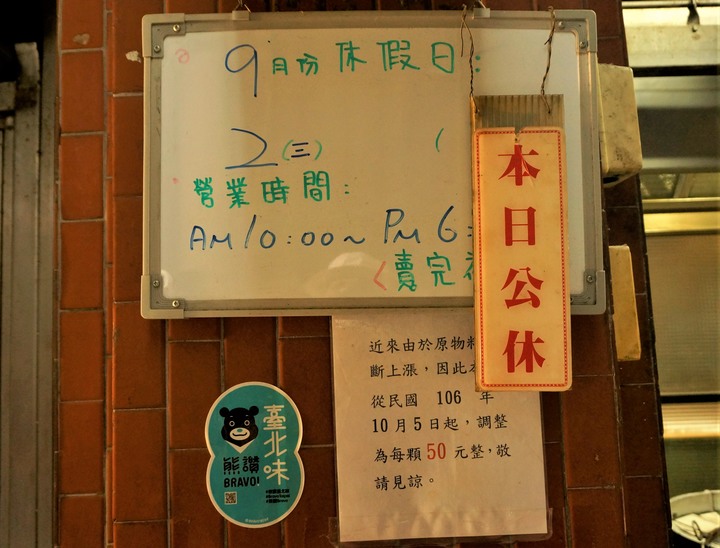 9月份休假日:
2(三) (
營業時間:
AM10:00~PM6:
<賣完
本日公休
近來由於原物
斷上漲，因此
從民國 106 年
10月5日起，調整
為每顆50元整，敬
請見諒。
臺北味
熊讚
BRAVO!